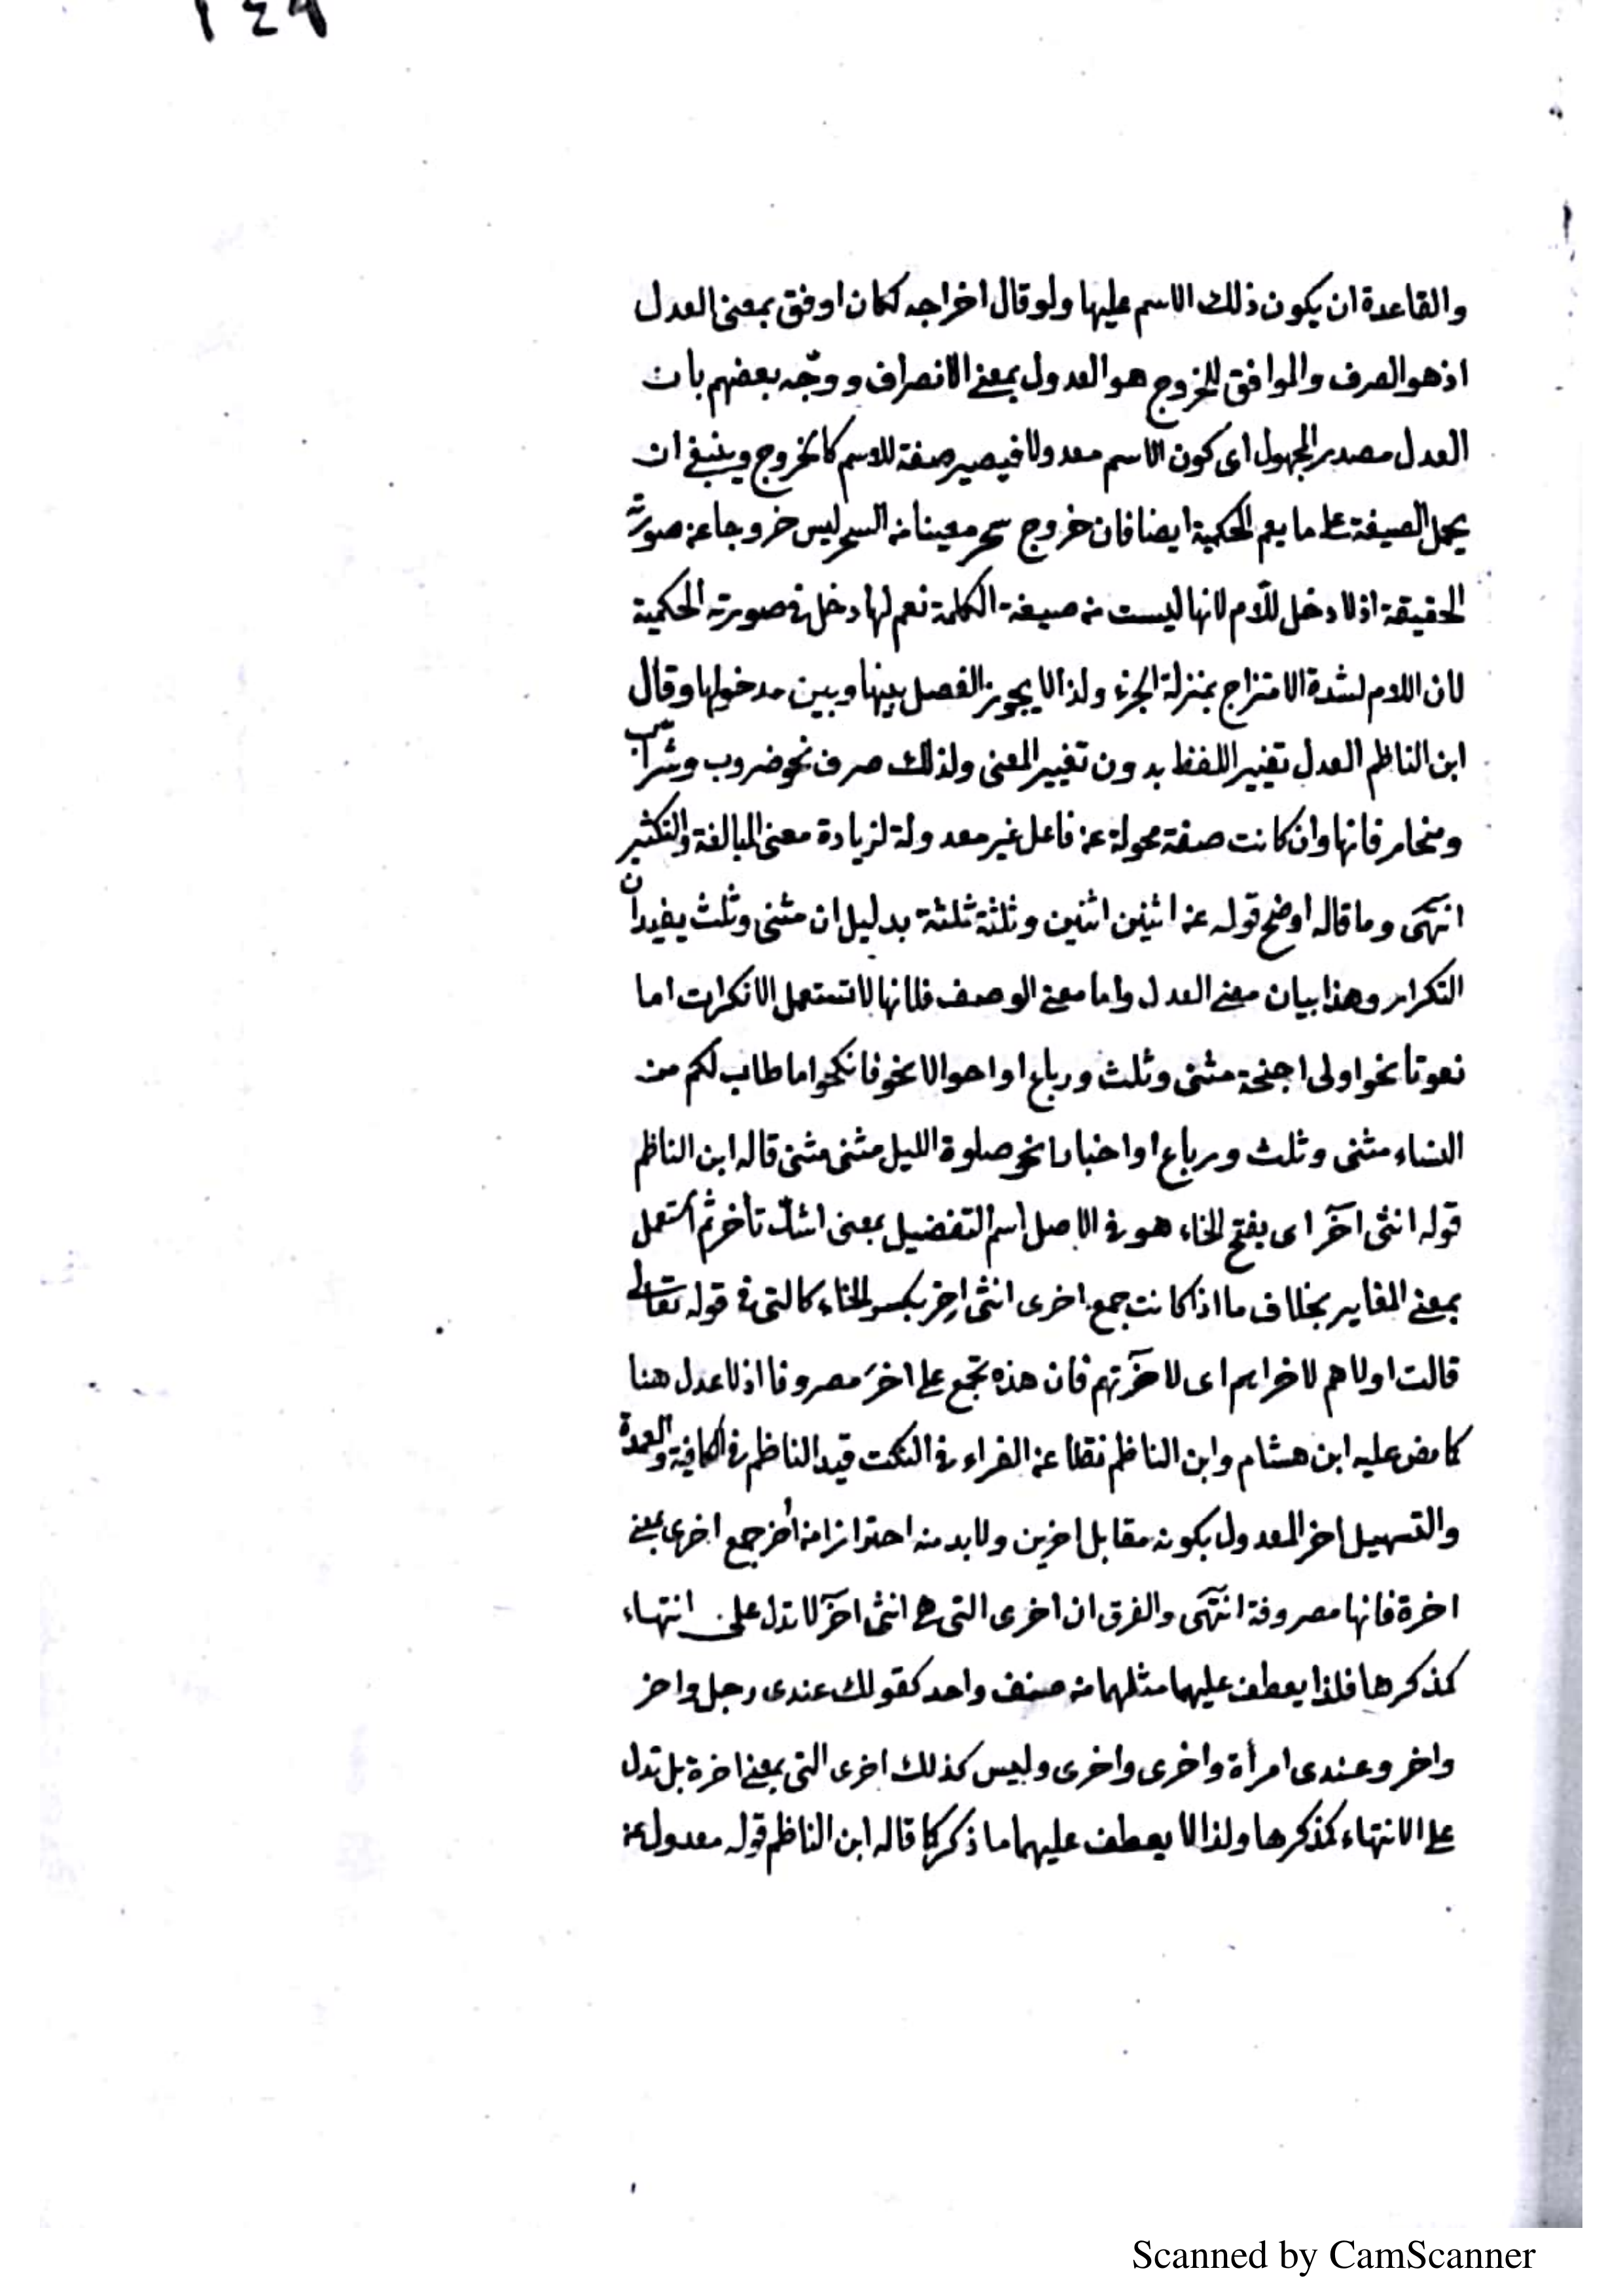 ١٤٩
والقاعدة ان يكون ذلك الاسم عليها ولو قال اخراجه لكان اوفق بمعنى العدل
اذ هو الصرف والموافق للخروج هو العدول بمعنى الانصراف ووجّه بعضهم بان
العدل مصدر المجهول اى كون الاسم معدولا فيصير صفة للاسم كالخروج وينبغى ان
يحمل الصيغة على ما يعم الحكمية ايضا فان خروج سحر معينا من السحر ليس خروجا عن صورته
الحقيقة اذ لا دخل للّام لانها ليست من صيغة الكلمة نعم لها دخل فى صورته الحكمية
لان اللام لشدة الامتزاج بمنزلة الجزء ولذا لا يجوز الفصل بينها وبين مدخولها وقال
ابن الناظم العدل تغيير اللفظ بدون تغيير المعنى ولذلك صرف نحو ضروب وشرّاب
ومنحار فانها وان كانت صفة محولة عن فاعل غير معدولة لزيادة معنى المبالغة والتكثير
انتهى وما قاله اوضح قوله عن اثنين اثنين وثلثة ثلثة بدليل ان مثنى وثلث يفيدان
التكرار وهذا بيان معنى العدل واما معنى الوصف فلانها لا تستعمل الا نكرات اما
نعوتا نحو اولى اجنحة مثنى وثلث ورباع او احوالا نحو فانكحوا ما طاب لكم من
النساء مثنى وثلث ورباع او اخبارا نحو صلوة الليل مثنى مثنى قاله ابن الناظم
قوله انثى آخَر اى بفتح الخاء هو فى الاصل اسم التفضيل بمعنى اشدّ تأخر ثم استعمل
بمعنى المغاير بخلاف ما اذا كانت جمع اخرى انثى اخِر بكسر الخاء كالتى فى قوله تعالى
قالت اولاهم لاخراهم اى لآخرتهم فان هذه تجمع على اخرَ مصروفا اذ لا عدل هنا
كما نص عليه ابن هشام وابن الناظم نقلا عن الفراء فى النكت قيد الناظم فى الكافية والعمدة
والتسهيل اخر المعدول بكونه مقابل اخرين ولا بد منه احترازا من أخر جمع اخرى بمعنى
اخرة فانها مصروفة انتهى والفرق ان اخرى التى هى انثى آخَر لا تدل على انتهاء
كمذكرها فلذا يعطف عليهما مثلهما من صنف واحد كقولك عندى رجل واخر
واخر وعندى امرأة واخرى واخرى وليس كذلك اخرى التى بمعنى اخرة بل تدل
على الانتهاء كمذكرها ولذا لا يعطف عليهما ما ذكر كما قاله ابن الناظم قوله معدول عن
Scanned by CamScanner